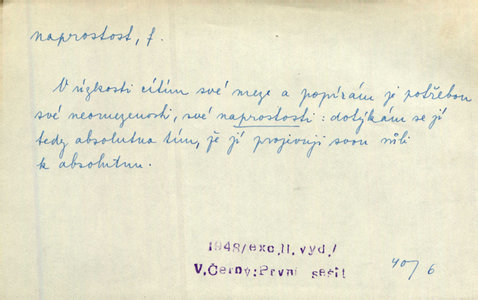 naprostost, f.
V úzkosti cítím své meze a popírám je potřebou
své neomezenosti, své naprostosti: dotýkám se jí
tedy absolutna tím, že jí projevuji svou vůli
k absolutnu.
1948/exc. II. vyd./
V. Černý: První sešit
40/6